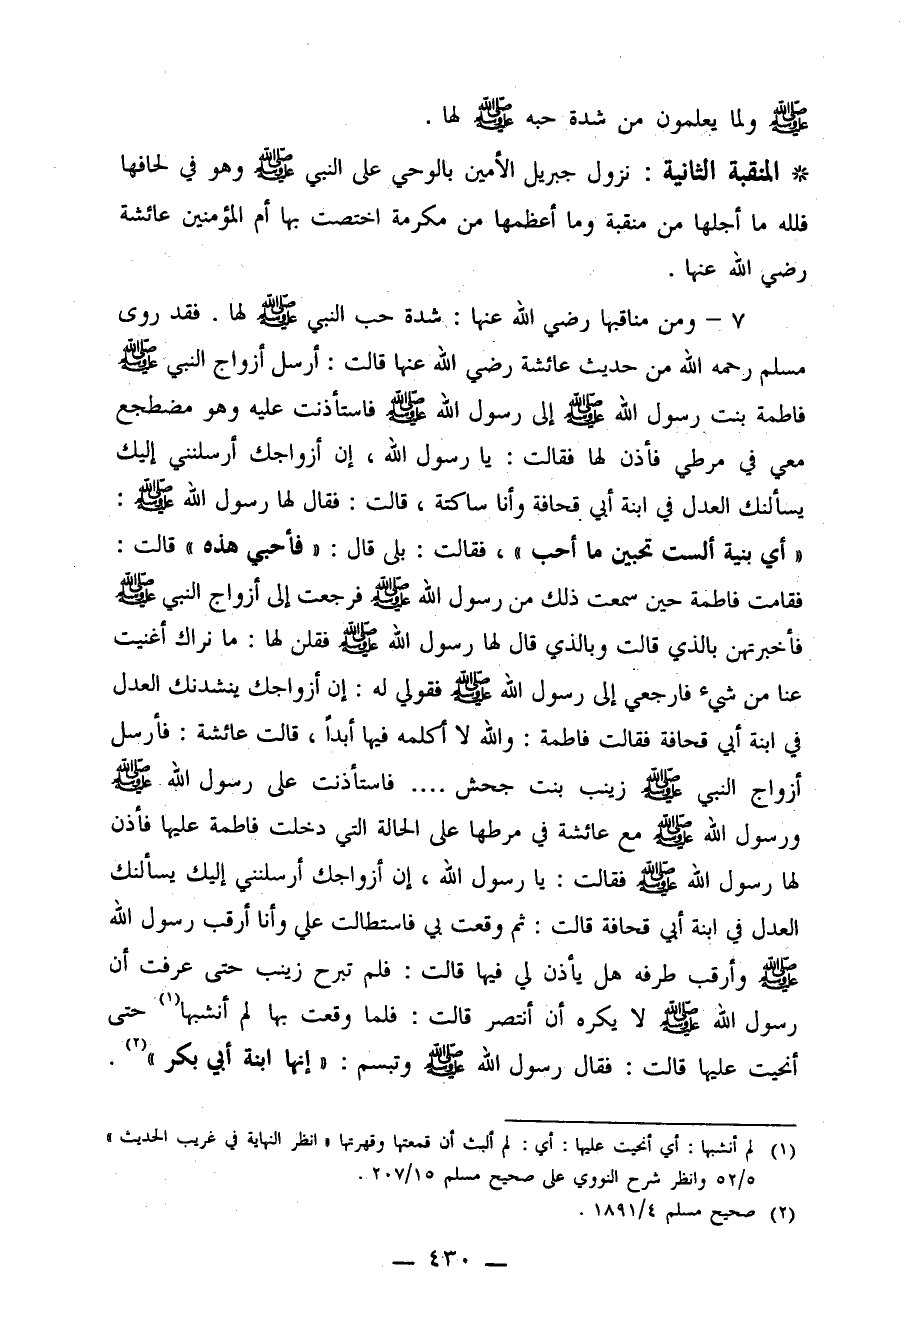 ﷺ ولما يعلمون من شدة حبه ﷺ لها .
* المنقبة الثانية : نزول جبريل الأمين بالوحي على النبي ﷺ وهو في لحافها
فلله ما أجلها من منقبة وما أعظمها من مكرمة اختصت بها أم المؤمنين عائشة
رضي الله عنها .
٧ – ومن مناقبها رضي الله عنها : شدة حب النبي ﷺ لها . فقد روى
مسلم رحمه الله من حديث عائشة رضي الله عنها قالت : أرسل أزواج النبي ﷺ
فاطمة بنت رسول الله ﷺ إلى رسول الله ﷺ فاستأذنت عليه وهو مضطجع
معي في مرطي فأذن لها فقالت : يا رسول الله ، إن أزواجك أرسلنني إليك
يسألنك العدل في ابنة أبي قحافة وأنا ساكتة ، قالت : فقال لها رسول الله ﷺ :
« أي بنية ألست تحبين ما أحب » ، فقالت : بلى قال : « فأحبي هذه » قالت :
فقامت فاطمة حين سمعت ذلك من رسول الله ﷺ فرجعت إلى أزواج النبي ﷺ
فأخبرتهن بالذي قالت وبالذي قال لها رسول الله ﷺ فقلن لها : ما نراك أغنيت
عنا من شيء فارجعي إلى رسول الله ﷺ فقولي له : إن أزواجك ينشدنك العدل
في ابنة أبي قحافة فقالت فاطمة : والله لا أكلمه فيها أبداً ، قالت عائشة : فأرسل
أزواج النبي ﷺ زينب بنت جحش .... فاستأذنت على رسول الله ﷺ
ورسول الله ﷺ مع عائشة في مرطها على الحالة التي دخلت فاطمة عليها فأذن
لها رسول الله ﷺ فقالت : يا رسول الله ، إن أزواجك أرسلنني إليك يسألنك
العدل في ابنة أبي قحافة قالت : ثم وقعت بي فاستطالت علي وأنا أرقب رسول الله
ﷺ وأرقب طرفه هل يأذن لي فيها قالت : فلم تبرح زينب حتى عرفت أن
رسول الله ﷺ لا يكره أن أنتصر قالت : فلما وقعت بها لم أنشبها(١) حتى
أنحيت عليها قالت : فقال رسول الله ﷺ وتبسم : « إنها ابنة أبي بكر »(٢) .
(١) لم أنشبها : أي أنحيت عليها : أي : لم ألبث أن قمعتها وقهرتها « انظر النهاية في غريب الحديث »
٥٢/٥ وانظر شرح النووي على صحيح مسلم ٢٠٧/١٥ .
(٢) صحيح مسلم ١٨٩١/٤ .
— ٤٣٠ —